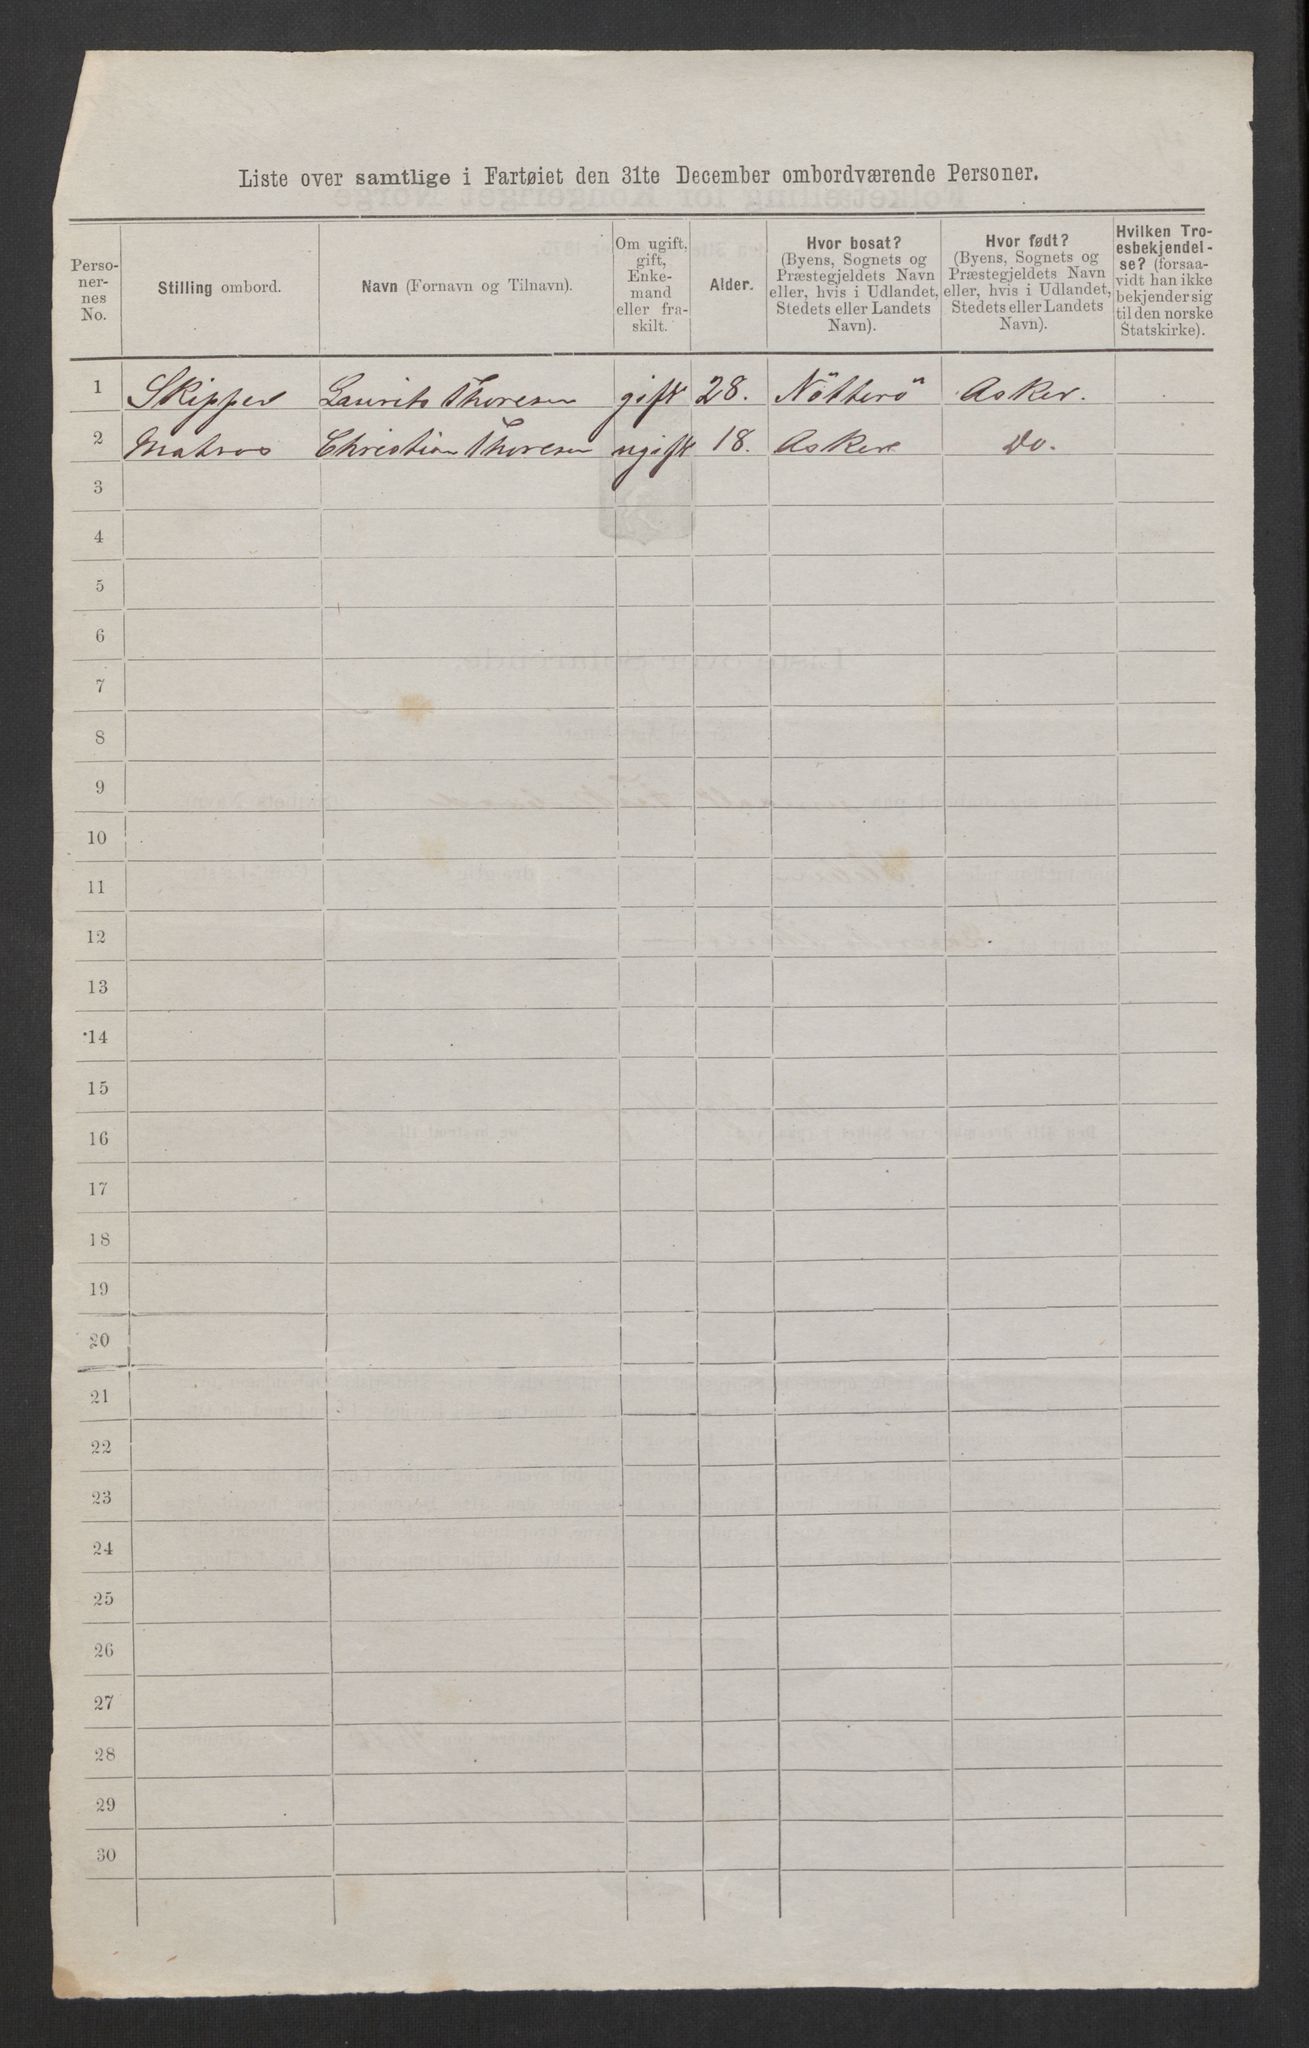 Liste over samtlige i Fartøiet den 31te December ombordværende Personer.
Perso-
ner-
nes
No.
Stilling ombord.
Navn (Fornavn og Tilnavn).
Om ugift,
gift,
Enke-
mand
eller fra-
skilt.
Alder.
Hvor bosat?
(Byens, Sognets og
Præstegjeldets Navn
eller, hvis i Udlandet,
Stedets eller Landets
Navn).
Hvor født?
(Byens, Sognets og
Præstegjeldets Navn
eller, hvis i Udlandet,
Stedets eller Landets
Navn).
Hvilken Tro-
esbekjendel-
se? (forsaa-
vidt han ikke
bekjender sig
til den norske
Statskirke).
1 Skipper Laurits Thoresen gift 28. Nötterö Asker.
2 Matros Christian Thoresen ugift 18. Asker Do.
3
4
5
6
7
8
9
10
11
12
13
14
15
16
17
18
19
20
21
22
23
24
25
26
27
28
29
30